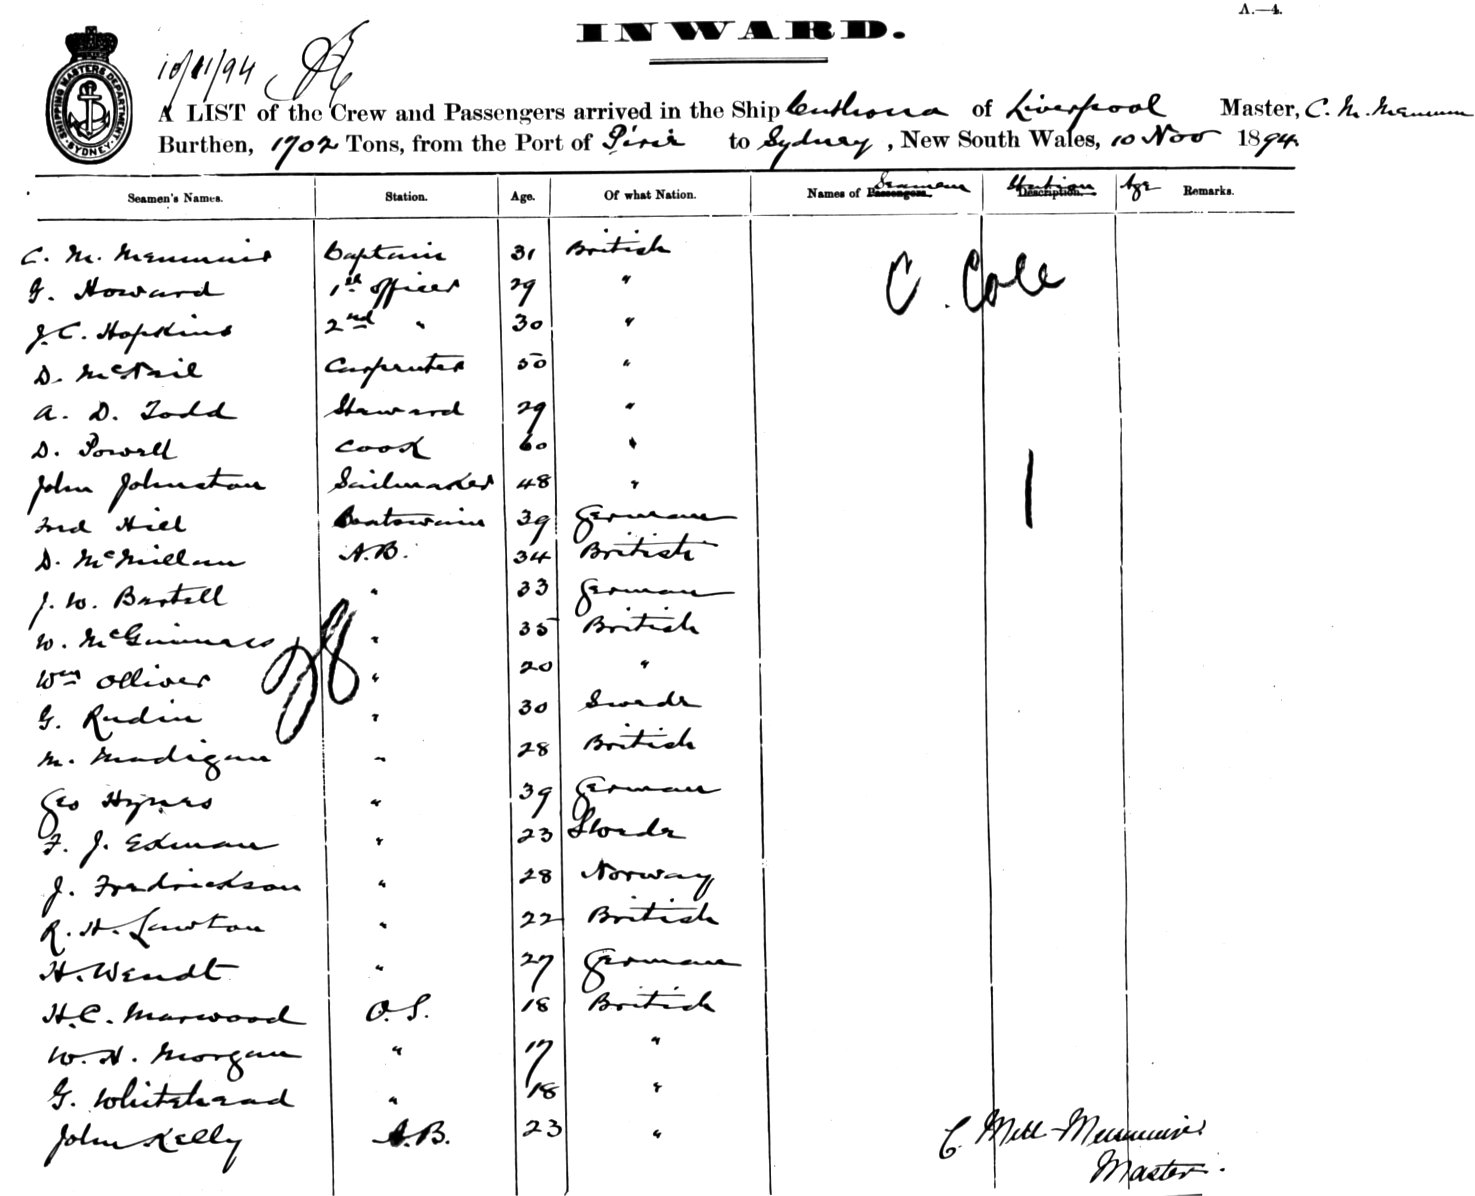 A.—4.
INWARD.
SHIPPING MASTERS DEPARTMENT SYDNEY
10/11/94
A LIST of the Crew and Passengers arrived in the Ship of Liverpool Master, C. M.
Burthen, 1702 Tons, from the Port of Pirie to Sydney, New South Wales, 10 Nov 1894.
Seamen's Names. Station. Age. Of what Nation. Names of Passengers. Seamen Description. Station Age Remarks.
C. M. Captain 31 British
G. Howard 1st officer 29 "
C. Cole
J. C. Hopkins 2nd " 30 "
D. McNeil Carpenter 50 "
A. D. Todd Steward 29 "
D. Powell Cook 60 "
John Johnston Sailmaker 48 "
Fred Hill Boatswain 39 German
D. McMillan A.B. 34 British
J. W. Bartell " 33 German
W. McGuinness " 35 British
Wm Olliver " 20 "
G. Rudin " 30 Swede
M. Madigan " 28 British
Geo Hynes " 39 German
F. J. Edman " 23 Swede
J. Fredrickson " 28 Norway
R. H. Lawton " 22 British
H. Wendt " 27 German
H. C. Marwood O.S. 18 British
W. H. Morgan " 17 "
G. Whitehead " 18 "
John Kelly A.B. 23 "
C.
Master.